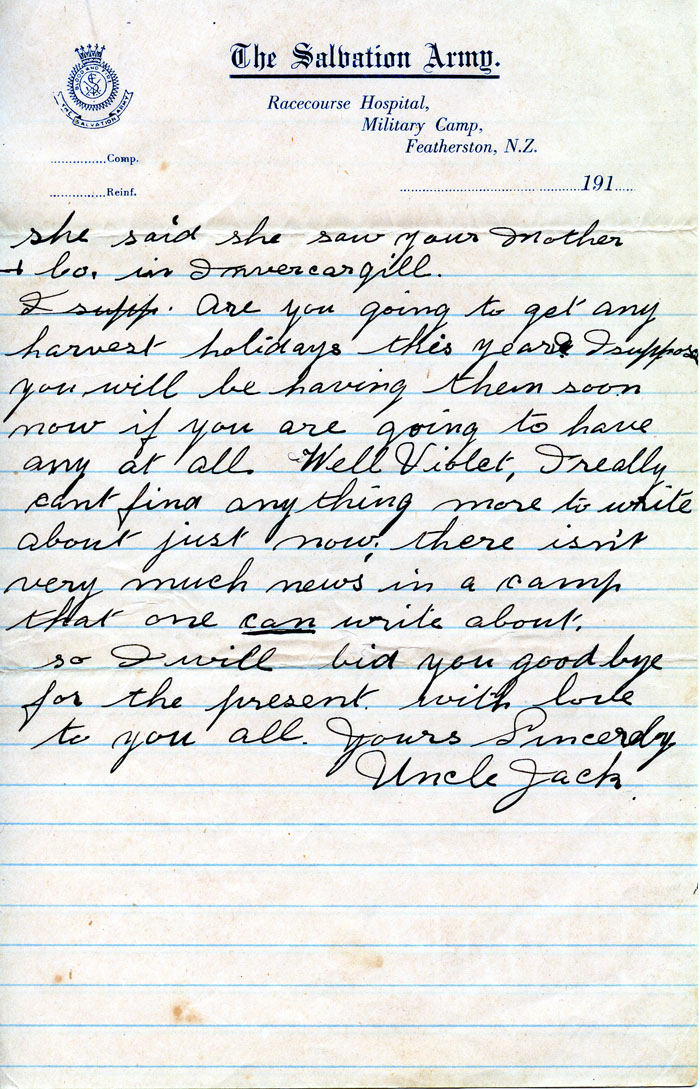 The Salvation Army.
Racecourse Hospital,
Military Camp,
Featherston, N.Z.
BLOOD AND FIRE
THE SALVATION ARMY
..............Comp.
..............Reinf.
..............................................191.....
she said she saw your Mother
+ Co. in Invercargill.
I supp. Are you going to get any
harvest holidays this year? I suppose
you will be having them soon
now if you are going to have
any at all. Well Violet, I really
cant find anything more to write
about just now, there isn't
very much news in a camp
that one can write about.
so I will bid you goodbye
for the present. with love
to you all. Yours Sincerely
Uncle Jack.